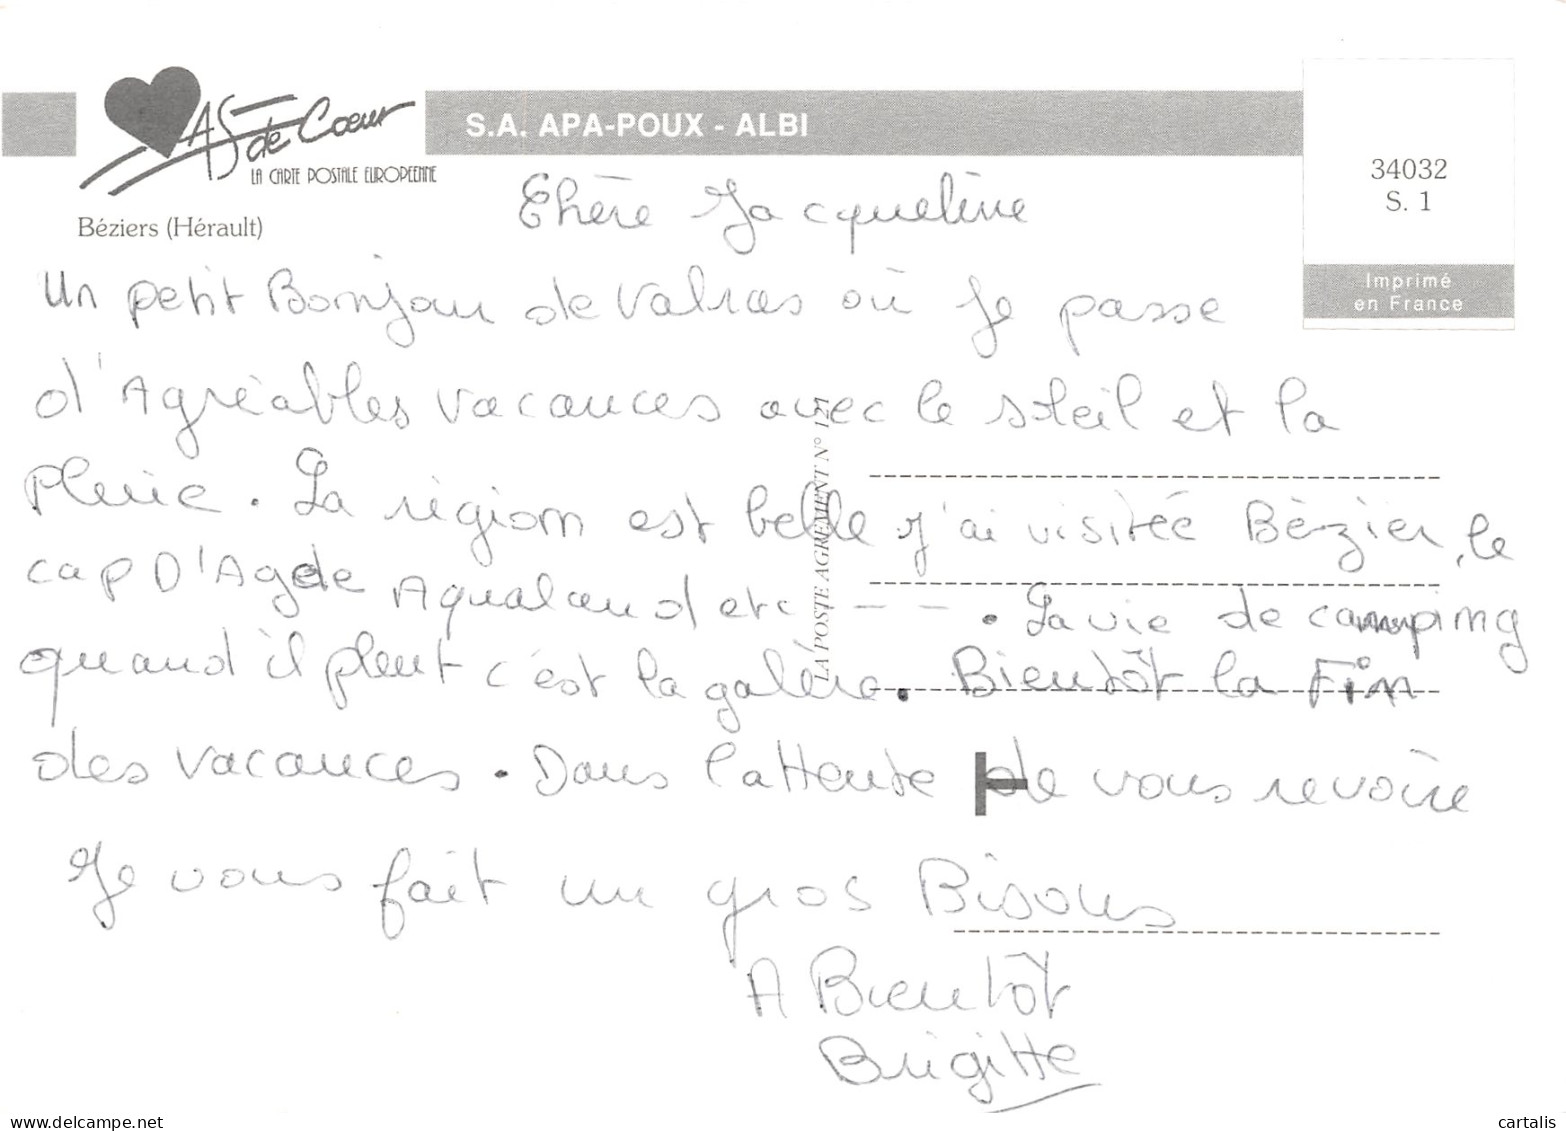 AS de Cœur
LA CARTE POSTALE EUROPEENNE
S.A. APA-POUX - ALBI
34032
S. 1
Imprimé
en France
Béziers (Hérault)
Chère Jacqueline
Un petit Bonjour de Valras où Je passe
d'Agréables vacances avec le soleil et la
Pluie. La région est belle j'ai visitée Bézier, le
cap D'Agde Aqualand etc - - - . La vie de camping
quand il pleut c'est la galère. Bientôt la Fin
des vacances. Dans l'attente de vous revoire
Je vous fait un gros Bisous
A Bientôt
Brigitte
LA POSTE AGREMENT N°
cartalis
delcampe.net